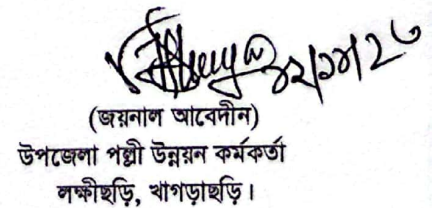 (জয়নাল আবেদীন)
উপজেলা পল্লী উন্নয়ন কর্মকর্তা
লক্ষীছড়ি, খাগড়াছড়ি।